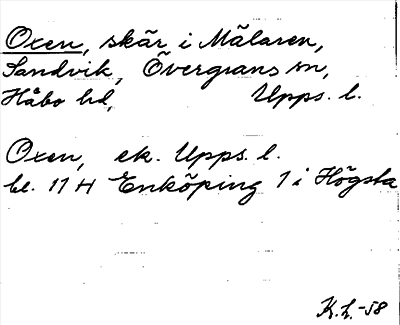 Oxen, skär i Mälaren,
Sandvik, Övergrans sn,
Håbo hd, Upps. l.
Oxen, ek. Upps. l.
bl. 11 H Enköping 1 i Högsta
K.L.-58